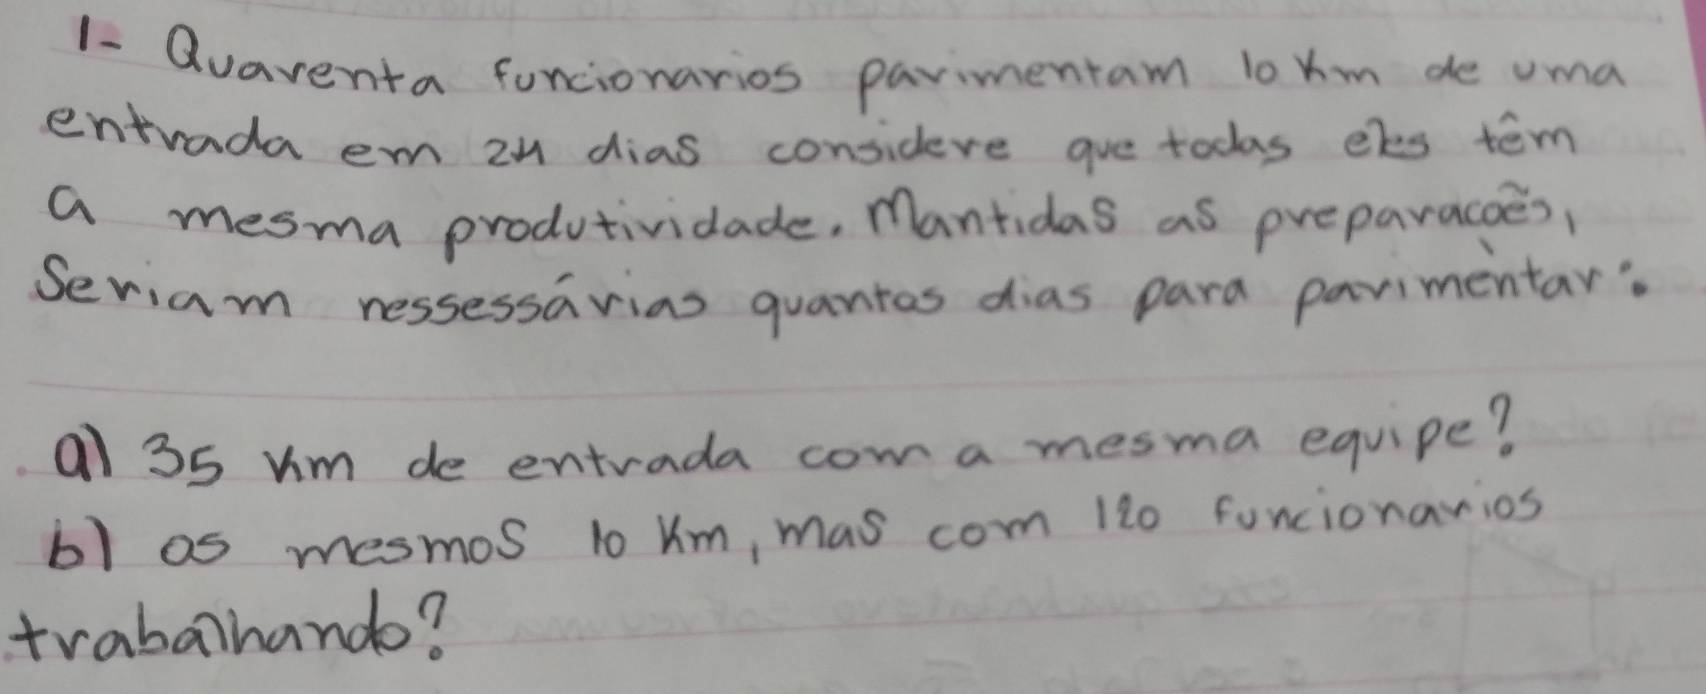 1- Quarenta funcionarios parimentam 10 km de uma
entrada em 24 dias considere que todas eles têm
a mesma produtividade. Mantidas as preparacoẽs,
Seriam nessessárias quantos dias para parimentar:
a) 35 km de entrada com a mesma equipe?
b) os mesmos 10 km, mas com 120 funcionarios
trabalhando?